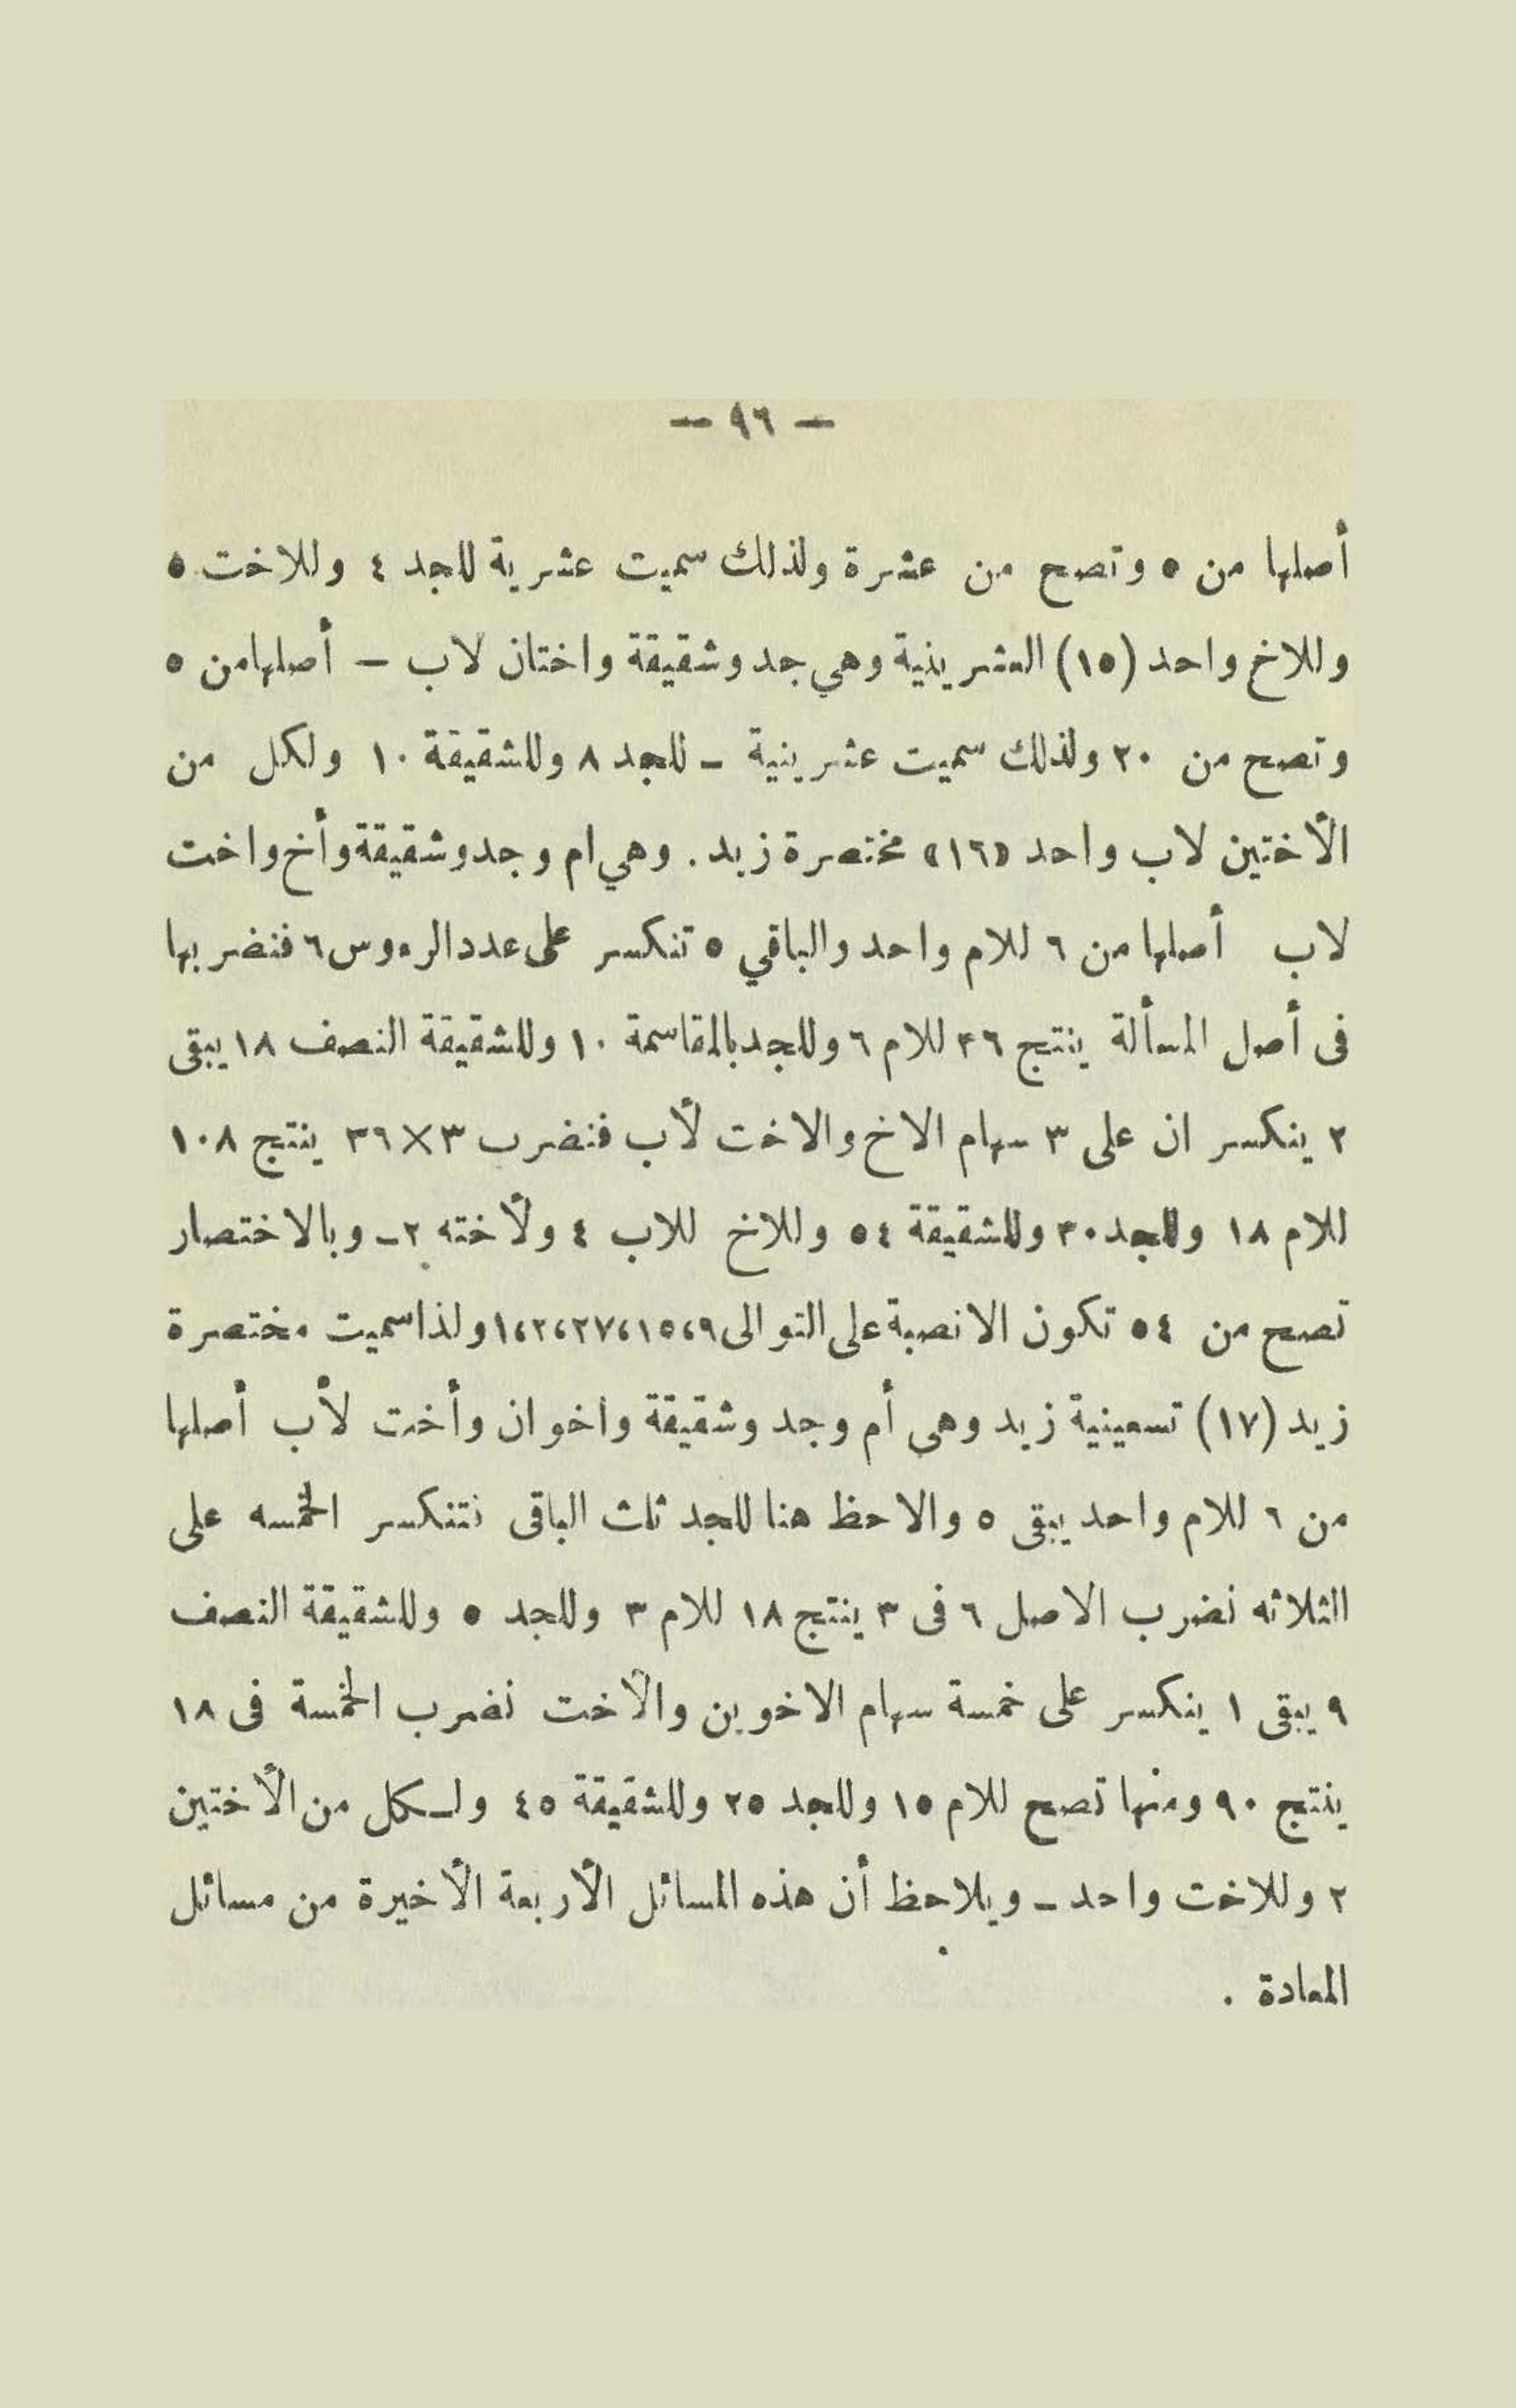 — ٩٦ —
أصلها من ٥ وتصح من عشرة ولذلك سميت عشرية للجد ٤ وللاخت ٥
وللاخ واحد (١٥) العشرينية وهي جد وشقيقة واختان لاب — أصلها من ٥
وتصح من ٢٠ ولذلك سميت عشرينية - للجد ٨ وللشقيقة ١٠ ولكل من
الأختين لاب واحد «١٦» مختصرة زيد . وهي ام وجد وشقيقة وأخ واخت
لاب أصلها من ٦ للام واحد والباقي ٥ تنكسر على عدد الرءوس ٦ فنضربها
فى أصل المسألة ينتج ٣٦ للام ٦ وللجد بالمقاسمة ١٠ وللشقيقة النصف ١٨ يبقى
٢ ينكسر ان على ٣ سهام الاخ والاخت لأب فنضرب ٣×٣٦ ينتج ١٠٨
للام ١٨ وللجد ٣٠ وللشقيقة ٥٤ وللاخ للاب ٤ ولأخته ٢ - وبالاختصار
تصح من ٥٤ تكون الانصبة على التوالى ٩،١٥،٢٧،٢،١ ولذا سميت مختصرة
زيد (١٧) تسعينية زيد وهى أم وجد وشقيقة واخوان وأخت لأب أصلها
من ٦ للام واحد يبقى ٥ والاحظ هنا للجد ثلث الباقى فتنكسر الخمسه على
الثلاثه نضرب الاصل ٦ فى ٣ ينتج ١٨ للام ٣ وللجد ٥ وللشقيقة النصف
٩ يبقى ١ ينكسر على خمسة سهام الاخوين والأخت نضرب الخمسة فى ١٨
ينتج ٩٠ ومنها تصح للام ١٥ وللجد ٢٥ وللشقيقة ٤٥ ولكل من الأختين
٢ وللاخت واحد - ويلاحظ أن هذه المسائل الأربعة الأخيرة من مسائل
المعادة .